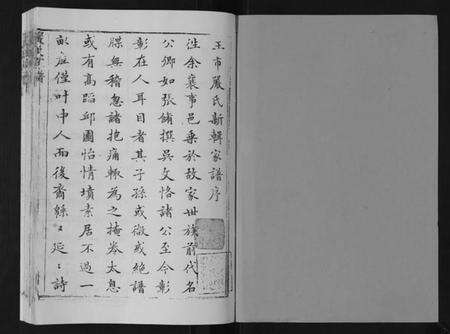 王市嚴氏新輯家譜序
往余襄事邑乘於故家世族前代名
公卿如張鋪撰吳文恪諸公至今彰
彰在人耳目者其子孫或微或絕譜
牒無稽忽諸抱痛輒為之掩卷太息
或有高蹈邱園怡情墳素居不過一
畝庭僅叶中人而後裔緜〻延〻詩